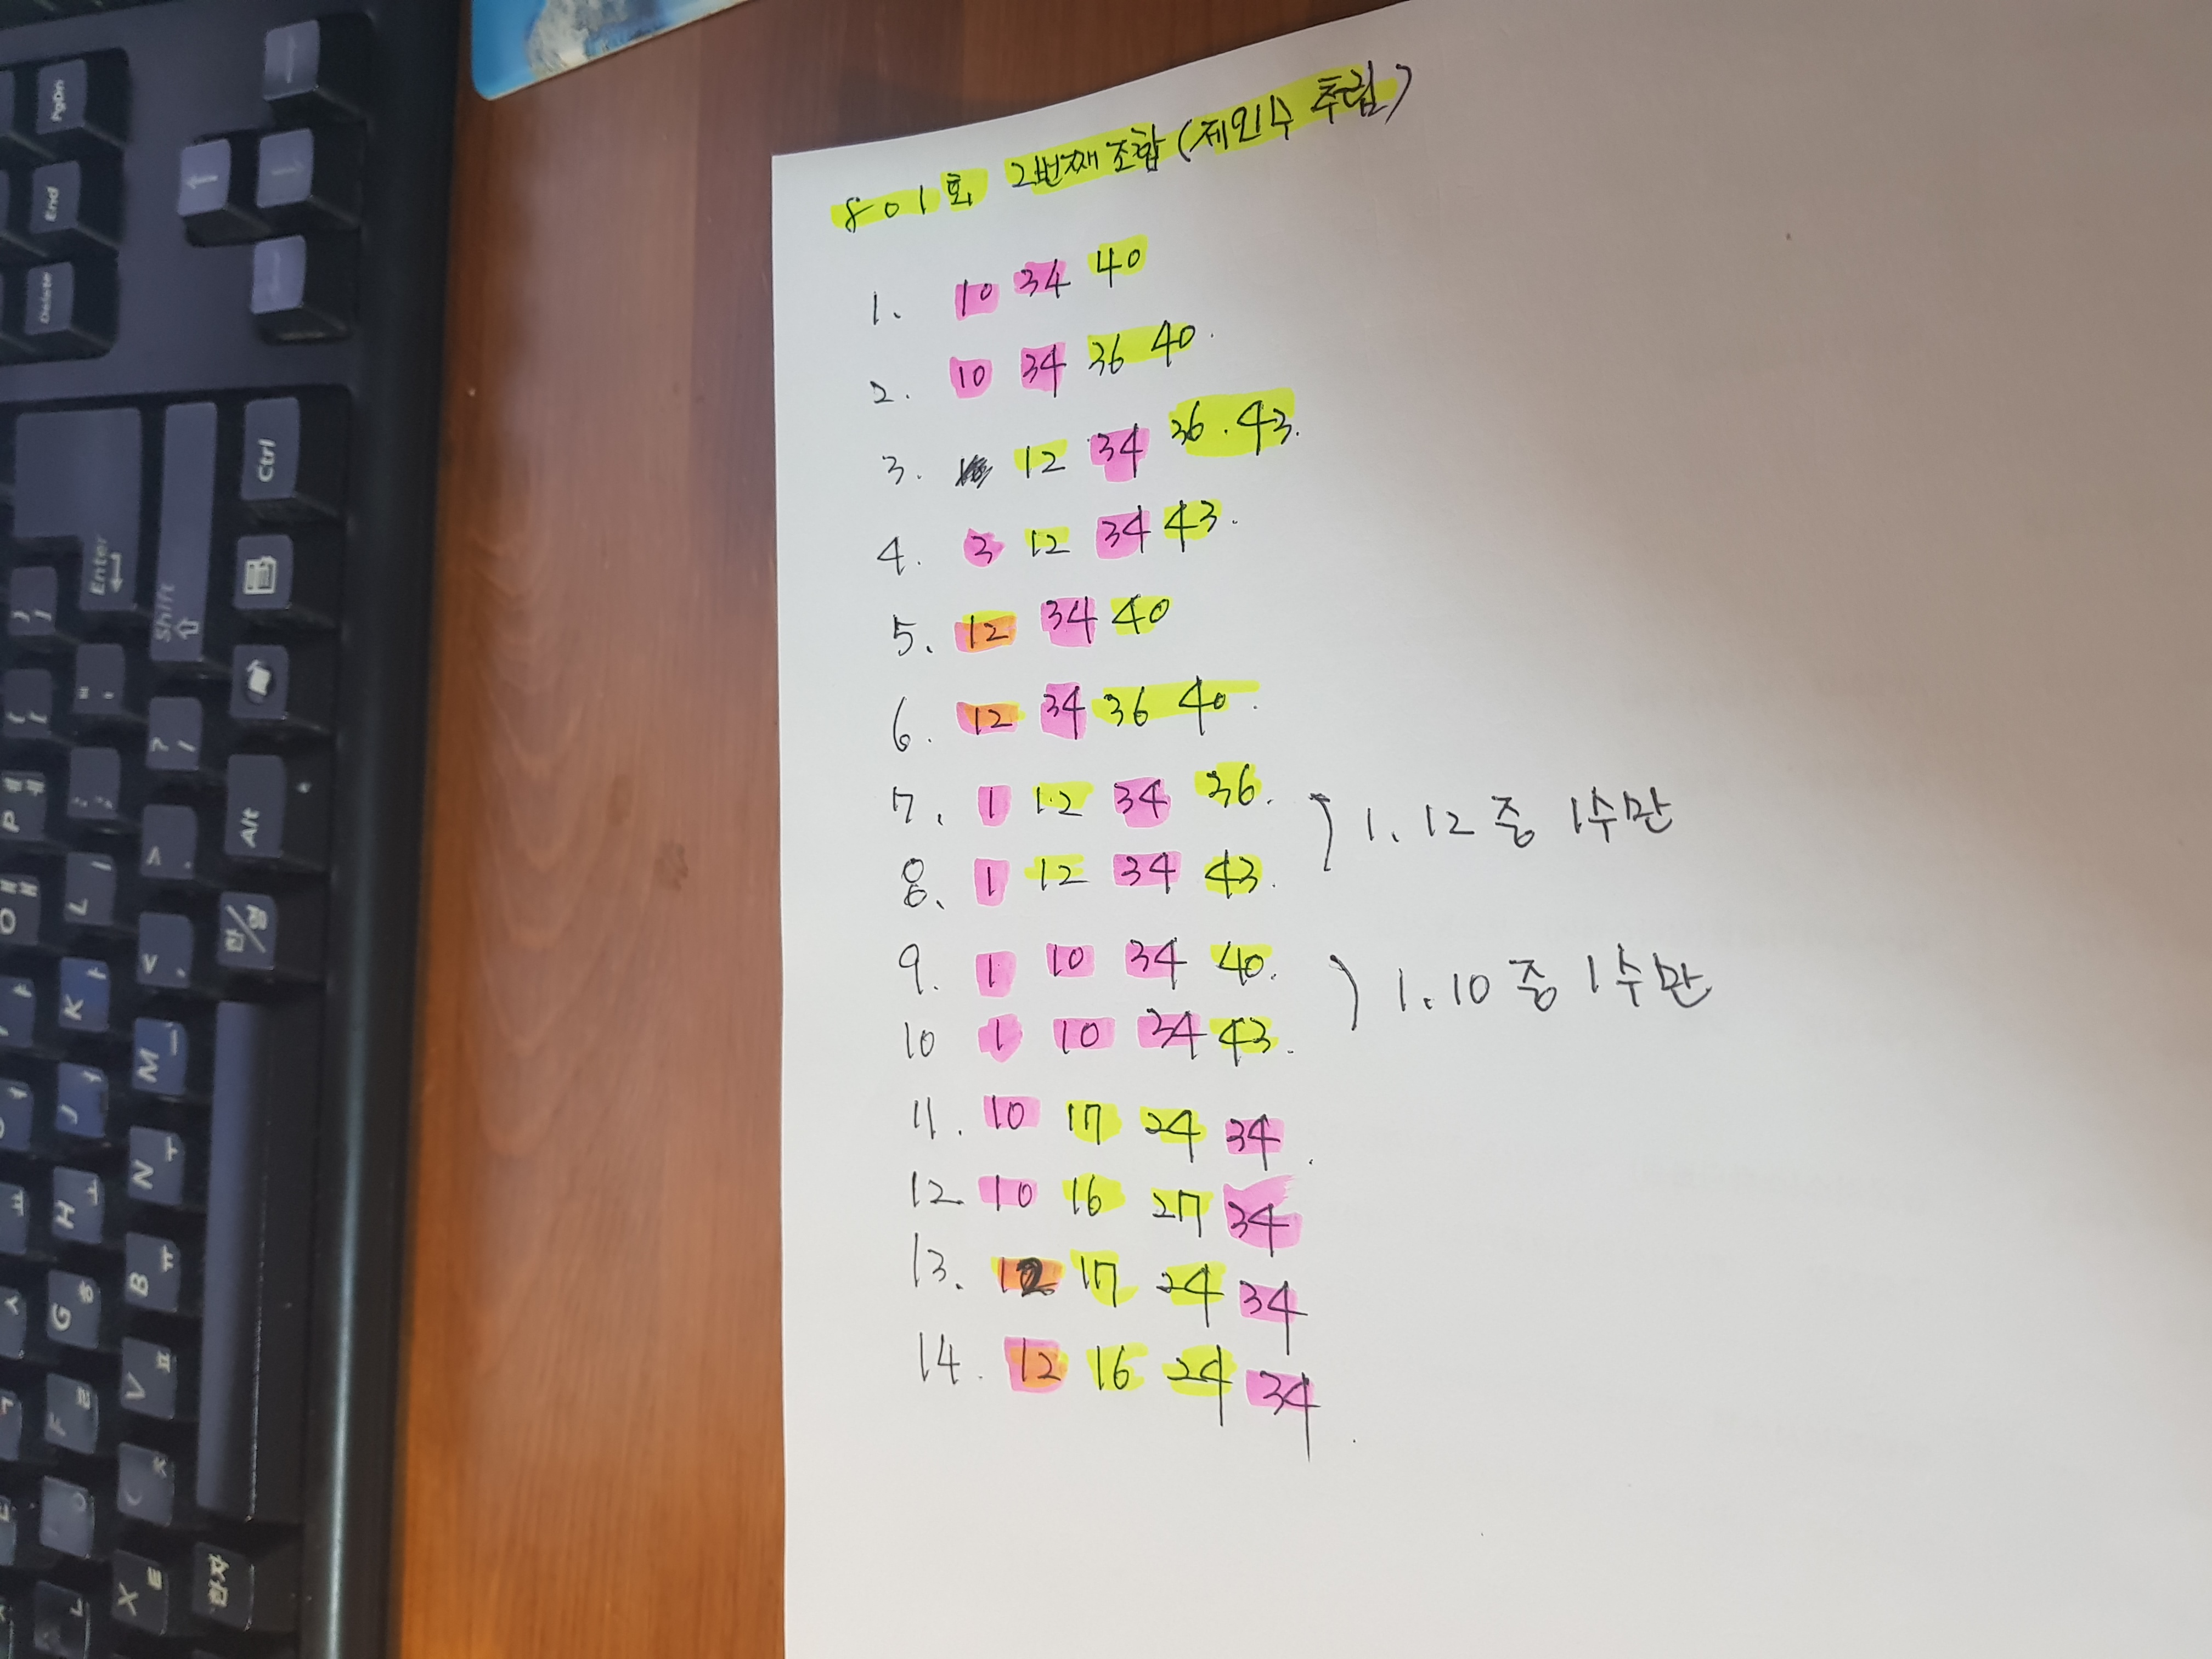 801회 2번째 조합 (제외수 추림)
1. 10 34 40
2. 10 34 36 40.
3. 12 34 36. 43.
4. 3 12 34 43.
5. 12 34 40
6. 12 34 36 40.
7. 1 12 34 36.
8. 1 12 34 43.
1. 12 중 1수만
9. 1 10 34 40.
10 1 10 34 43.
1. 10 중 1수만
11. 10 17 24 34.
12. 10 16 27 34
13. 12 17 24 34
14. 12 16 24 34.
PgDn
End
Delete
Enter
Shift
Ctrl
Alt
한/영
한자
? /
> .
< ,
" '
: ;
P ㅔ ㅖ
L ㅣ
K ㅏ
M ㅡ
J ㅓ
N ㅜ
H ㅗ
B ㅠ
G ㅎ
V ㅍ
F ㄹ
X ㅌ